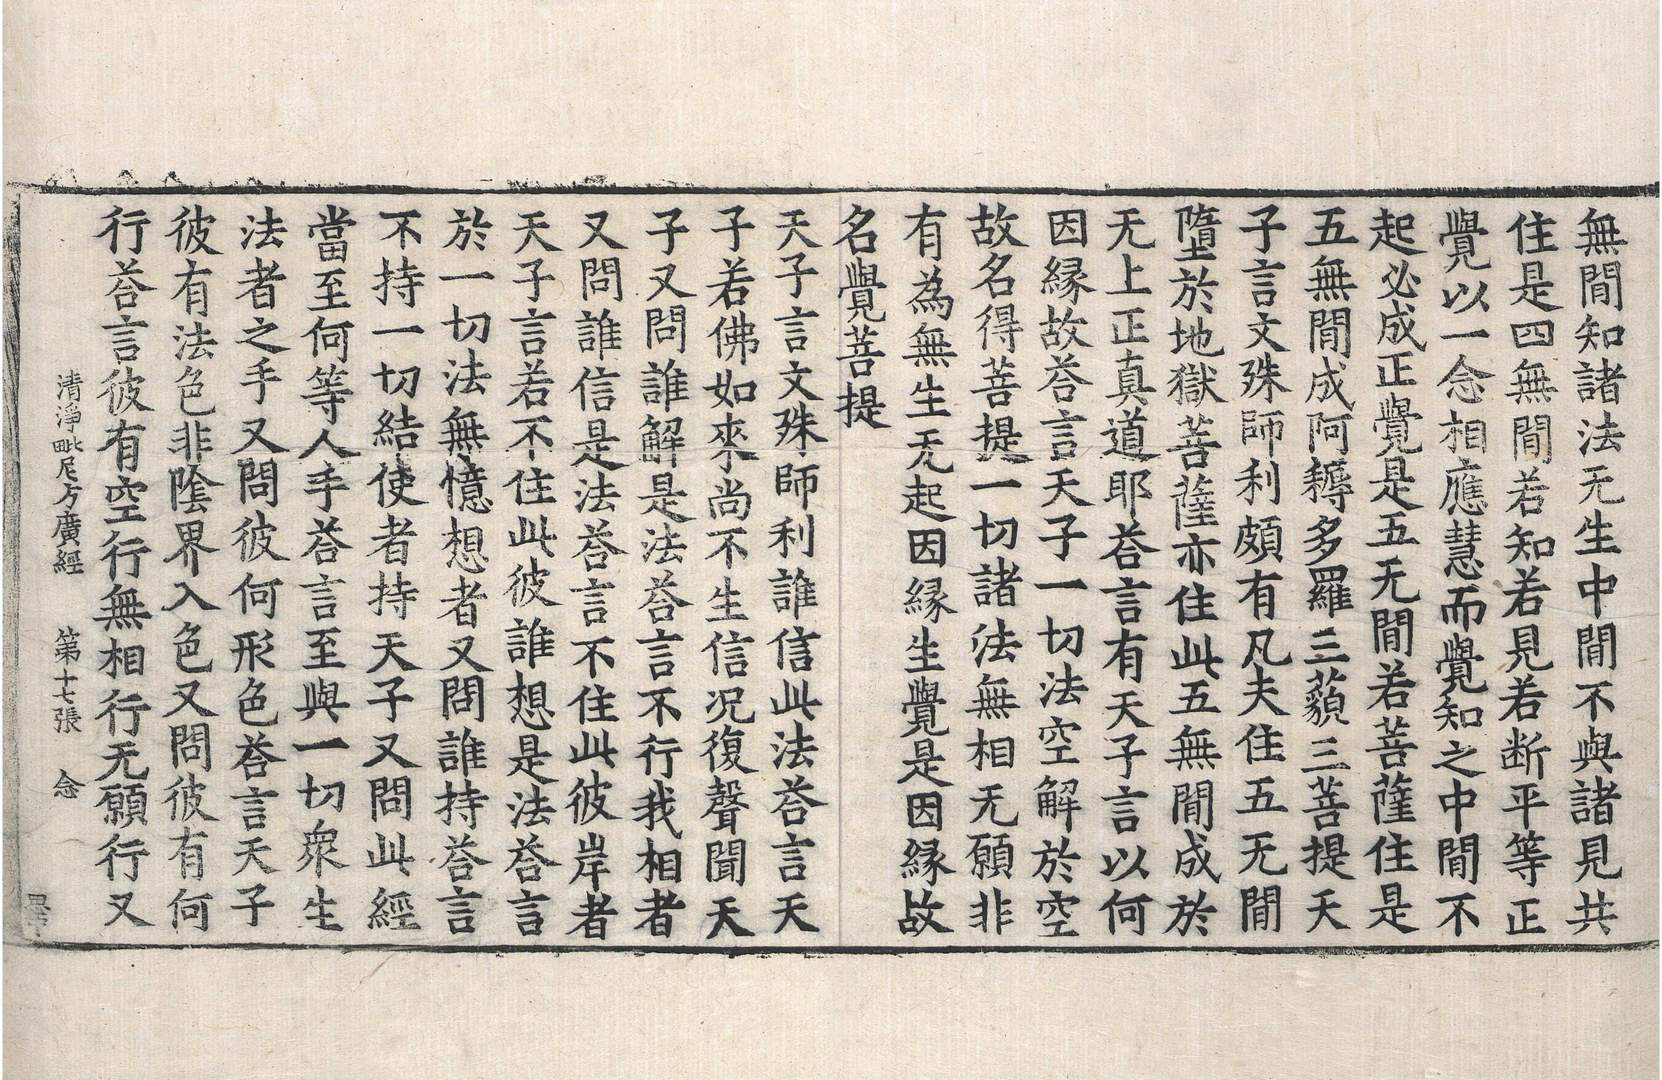 無間知諸法无生中間不與諸見共
住是四無間若知若見若断平等正
覺以一念相應慧而覺知之中間不
起必成正覺是五无間若菩薩住是
五無間成阿耨多羅三藐三菩提天
子言文殊師利頗有凡夫住五无間
墮於地獄菩薩亦住此五無間成於
无上正真道耶荅言有天子言以何
因縁故荅言天子一切法空解於空
故名得菩提一切諸法無相无願非
有為無生无起因縁生覺是因縁故
名覺菩提
天子言文殊師利誰信此法荅言天
子若佛如來尚不生信况復聲聞天
子又問誰解是法荅言不行我相者
又問誰信是法荅言不住此彼岸者
天子言若不住此彼誰想是法荅言
於一切法無憶想者又問誰持荅言
不持一切結使者持天子又問此經
當至何等人手荅言至與一切衆生
法者之手又問彼何形色荅言天子
彼有法色非陰界入色又問彼有何
行荅言彼有空行無相行无願行又
清淨毗尼方廣經 第十七張 念